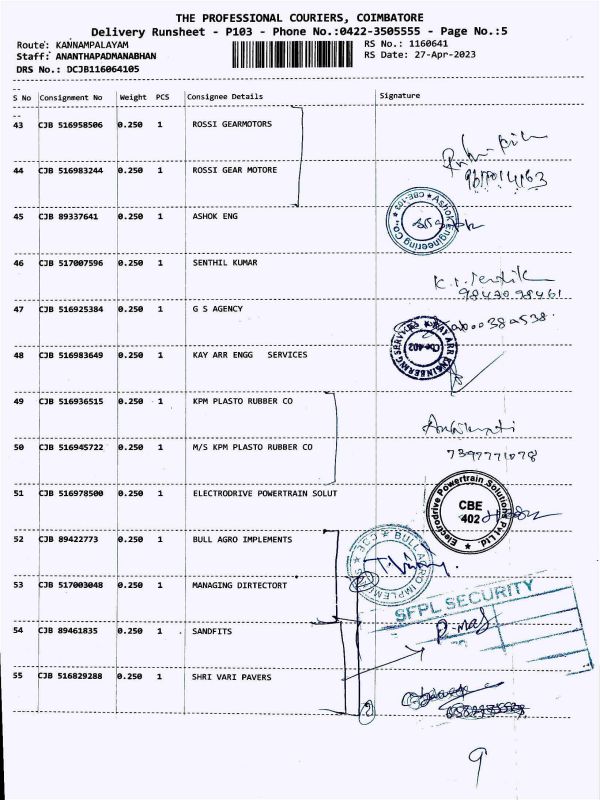 THE PROFESSIONAL COURIERS, COIMBATORE
Delivery Runsheet - P103 - Phone No.:0422-3505555 - Page No.:5
Route: KANNAMPALAYAM
RS No.: 1160641
Staff: ANANTHAPADMANABHAN
RS Date: 27-Apr-2023
DRS No.: DCJB116064105
S No Consignment No Weight PCS Consignee Details Signature
43 CJB 516958506 0.250 1 ROSSI GEARMOTORS
44 CJB 516983244 0.250 1 ROSSI GEAR MOTORE
45 CJB 89337641 0.250 1 ASHOK ENG
Ashok Engineering Co., ★ CBE-103 ★
46 CJB 517007596 0.250 1 SENTHIL KUMAR
9843098461
47 CJB 516925384 0.250 1 G S AGENCY
48 CJB 516983649 0.250 1 KAY ARR ENGG SERVICES
KAY ARR ENGINEERING SERVICES
Cbe-402
49 CJB 516936515 0.250 1 KPM PLASTO RUBBER CO
50 CJB 516945722 0.250 1 M/S KPM PLASTO RUBBER CO
7397771078
51 CJB 516978500 0.250 1 ELECTRODRIVE POWERTRAIN SOLUT
Electrodrive Powertrain Solutions Pvt Ltd. ★
CBE
402
52 CJB 89422773 0.250 1 BULL AGRO IMPLEMENTS
BULL AGRO IMPLEMENTS
53 CJB 517003048 0.250 1 MANAGING DIRTECTORT
SFPL SECURITY
54 CJB 89461835 0.250 1 SANDFITS
55 CJB 516829288 0.250 1 SHRI VARI PAVERS
9